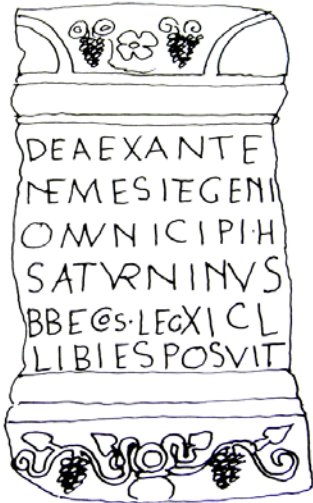 DEAEXANTE
NEMESITEGENI
OMVNICIPI·H
SATVRNINVS
BBECOS·LEGXICL
LIBIESPOSVIT